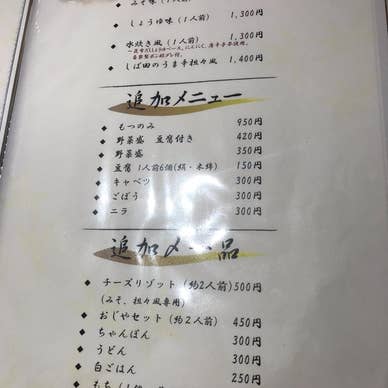 みそ味（1人前） 1,300円
しょうゆ味（1人前） 1,300円
水炊き風（1人前） 1,300円
しば田のうま辛担々風 1,400円
追加メニュー
もつのみ 950円
野菜盛 豆腐付き 420円
野菜盛 350円
豆腐 1人前6個(絹・木綿) 150円
キャベツ 300円
ごぼう 300円
ニラ 300円
追加〆一品
チーズリゾット（約2人前）500円
（みそ、担々風専用）
おじやセット（約2人前） 450円
ちゃんぽん 300円
うどん 300円
白ごはん 250円